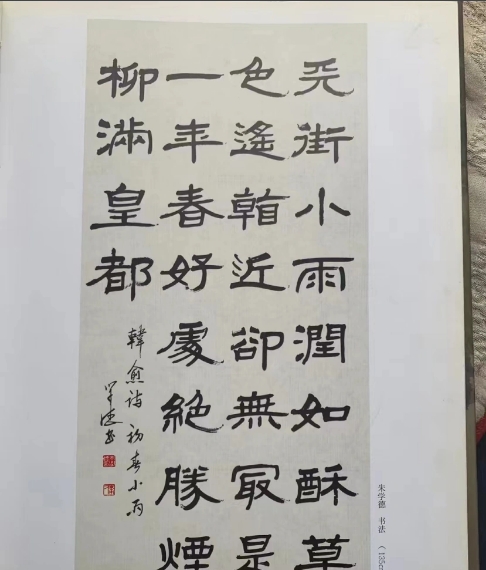 天街小雨潤如酥草
色遙看近卻無最是
一年春好處絕勝煙
柳滿皇都
韓愈詩 初春小雨
學德書
朱学德 书法 （135c